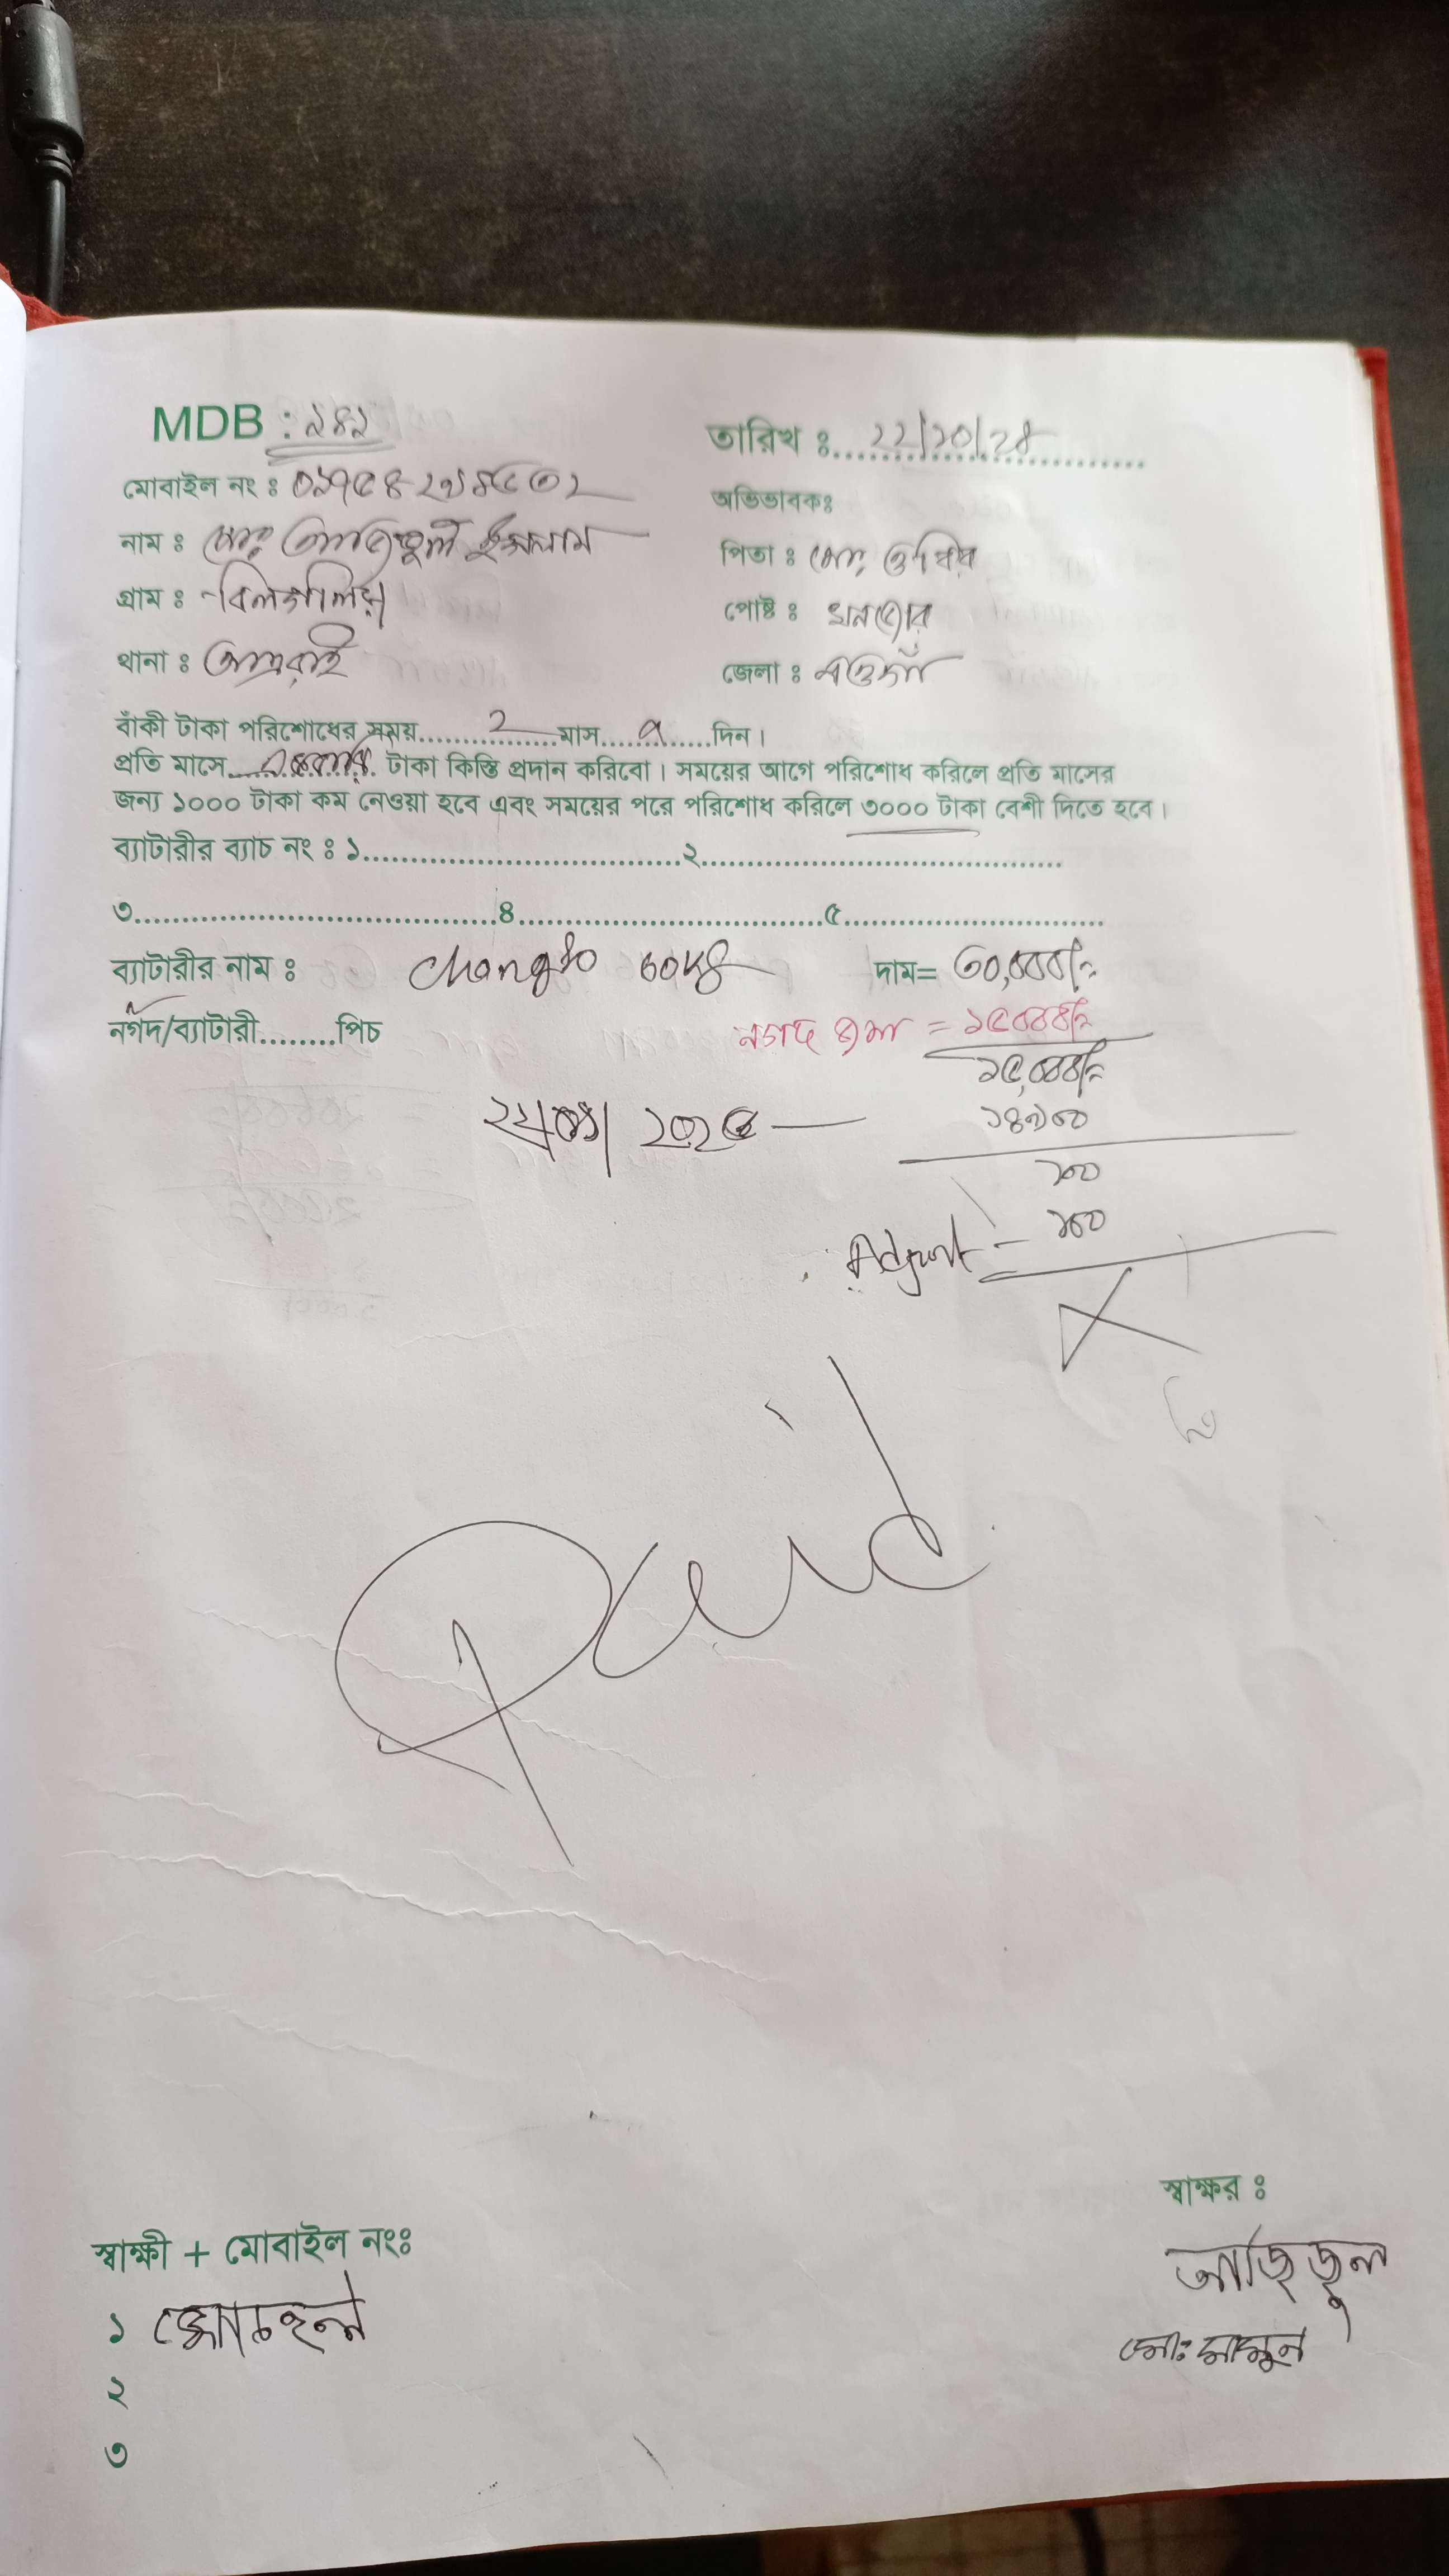 MDB : ১৪১
তারিখ ঃ 22/10/24
মোবাইল নং ঃ
অভিভাবকঃ
নাম ঃ মোঃ আজিজুল ইসলাম
পিতা ঃ মোঃ
গ্রাম ঃ
পোষ্ট ঃ
থানা ঃ আত্রাই
জেলা ঃ নওগাঁ
বাঁকী টাকা পরিশোধের সময়......2......মাস......দিন।
প্রতি মাসে...... টাকা কিস্তি প্রদান করিবো। সময়ের আগে পরিশোধ করিলে প্রতি মাসের
জন্য ১০০০ টাকা কম নেওয়া হবে এবং সময়ের পরে পরিশোধ করিলে ৩০০০ টাকা বেশী দিতে হবে।
ব্যাটারীর ব্যাচ নং ঃ ১......২......
৩......৪......৫......
ব্যাটারীর নাম ঃ
দাম= ৩০,০০০/=
নগদ/ব্যাটারী........পিচ
নগদ জমা = ১৫০০০/=
১৫,০০০/=
১৪৯০০
১০০
Adjust = ১০০
Paid
স্বাক্ষর ঃ
আজিজুল
মোঃ মামুন
স্বাক্ষী + মোবাইল নংঃ
১
২
৩